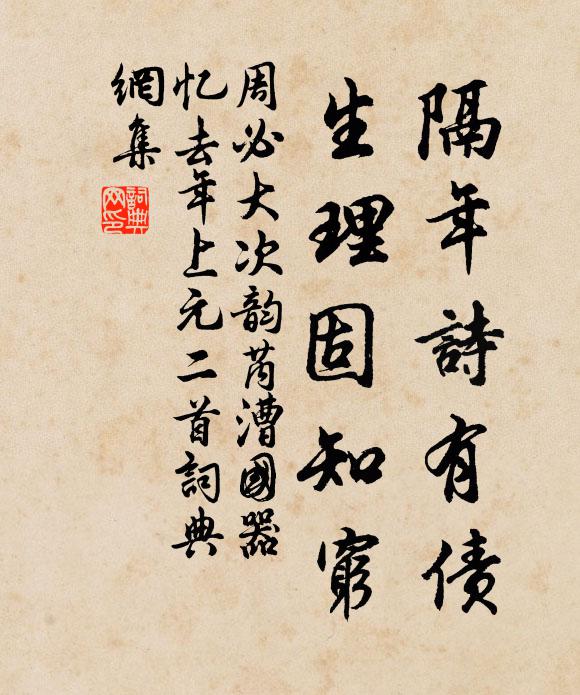 隔年詩有債
生理固知窮
周必大次韵芮漕國器
忆去年上元二首詞典
網集
詞典網印